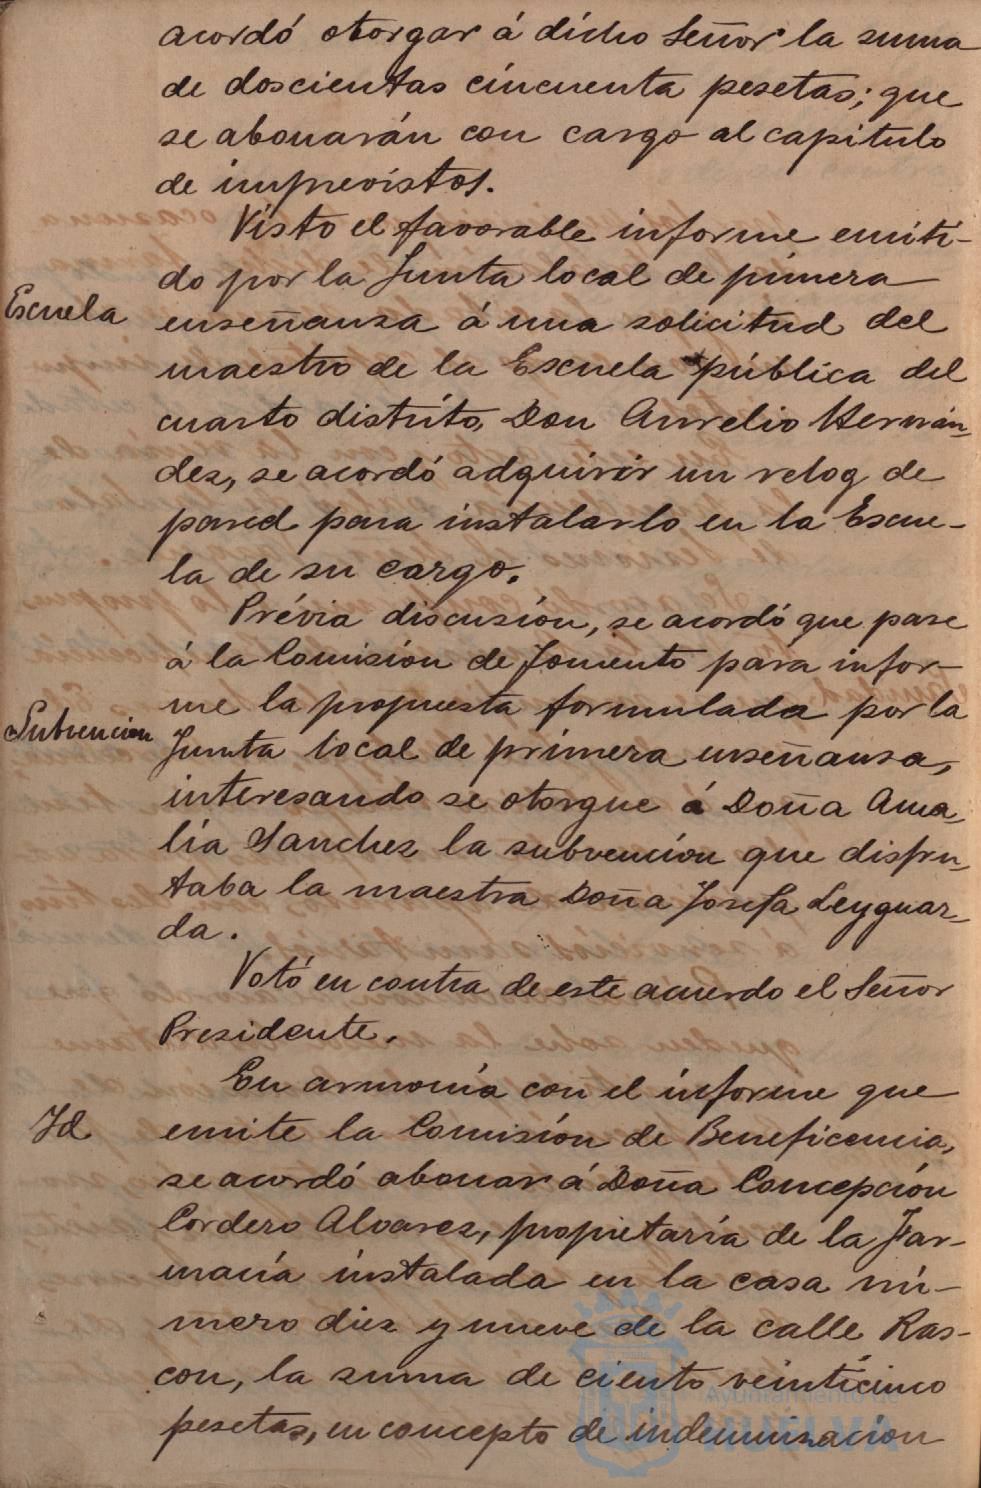 acordó otorgar á dicho Señor la suma
de doscientas cincuenta pesetas; que
se abonarán con cargo al capitulo
de imprevistos.
Visto el favorable informe emiti-
do por la Junta local de pimera
Escuela
enseñansa á una solicitud del
maestro de la Escuela pública del
cuarto distrito, Don Aurelio Hernán-
dez, se acordó adquirir un relog de
pared para instalarlo en la Escue-
la de su cargo.
Prévia discusión, se acordó que pase
á la Comisión de Fomento para infor-
me la propuesta formulada por la
Subvencion
Junta local de primera enseñansa,
interesando se otorgue á Doña Ama-
lia Sanchez la subvención que disfru-
taba la maestra Doña Josefa Leyguar-
da.
Votó en contra de este acuerdo el Señor
Presidente.
En armonía con el informe que
Id
emite la Comisión de Beneficencia,
se acordó abonar á Doña Concepción
Cordero Alvarez, propietaria de la Far-
macia instalada en la casa nú-
mero diez y nueve de la calle Ras-
con, la suma de ciento veinticinco
pesetas, en concepto de indemnisación
Ayuntamiento de
HUELVA